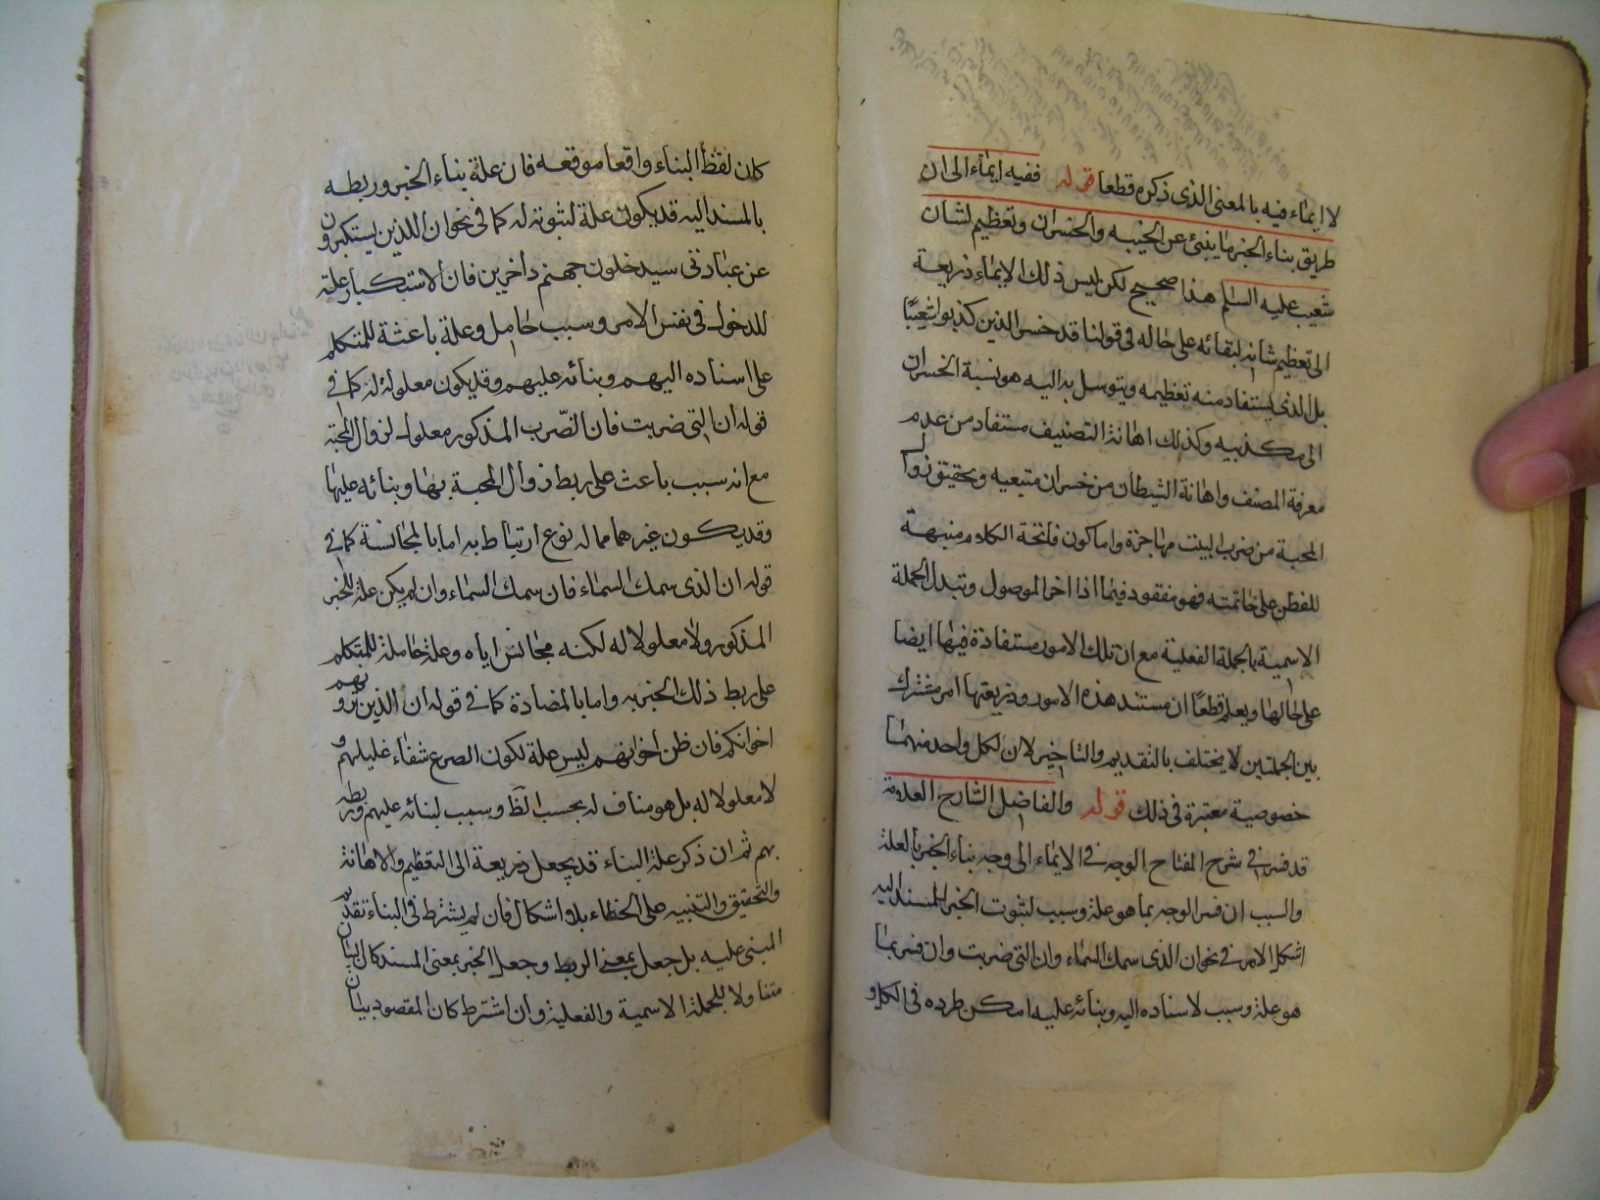 لا ايماء فيه بالمعنى الذى ذكره قطعا قوله ففيه ايماء الى ان
طريق بناء الخبر ما ينبئ عن الخيبه والخسران وتعظيم لشان
شعيب عليه السلم هذا صحيح لكن ليس ذلك الايماء ذريعة
الى تعظيم شانه لبقائه على حاله فى قولنا قد خسر الذين كذبوا شعيبا
بل الذى يستفاد منه تعظيمه ويتوسل به اليه هو نسبة الخسران
الى مكذبيه وكذلك اهانة التصنيف مستفاد من عدم
معرفة المصنف واهانة الشيطان من خسران متبعيه وتحقيق زوال
المحبة من ضرب البيت مهاجرة واما كون فاتحة الكلام منبهة
للفطن على خاتمته فهو مفقود فيما اذا اخر الموصول وتبدل الجملة
الاسمية بالجملة الفعلية مع ان تلك الامور مستفادة فيها ايضا
على حالها ويعلم قطعًا ان مستند هذه الامور وذريعتها امر مشترك
بين الجملتين لا يختلف بالتقديم والتاخير لان لكل واحد منهما
خصوصية معتبرة فى ذلك قوله والفاضل الشارح العلامة
قد فسر فى شرح المفتاح الوجه فى الايماء الى وجه بناء الخبر بالعلة
والسبب ان فسر الوجه بما هو علة وسبب لثبوت الخبر للمسند اليه
اشكل الامر فى نحو ان الذى سمك السماء وان التى ضربت وان فسر بما
هو علة وسبب لاسناده اليه وبنائه عليه امكن طرده فى الكل و
كان لفظ البناء واقعا موقعه فان علة بناء الخبر وربطه
بالمسند اليه قد يكون علة لثبوته له كما فى نحو ان الذين يستكبرون
عن عبادتى سيدخلون جهنم داخرين فان الاستكبار علة
للدخول فى نفس الامر وسبب حامل وعلة باعثة للمتكلم
على اسناده اليهم وبنائه عليهم وقد يكون معلولة له كما فى
قوله ان التى ضربت فان الضرب المذكور معلول لزوال المحبة
مع انه سبب باعث على ربط زوال المحبة بها وبنائه عليها
وقد يكون غيرهما مما له نوع ارتباط به اما بالمجانسة كما فى
قوله ان الذى سمك السماء فان سمك السماء وان لم يكن علة للخبر
المذكور ولا معلولا له لكنه مجانس اياه وعلة حاملة للمتكلم
على ربط ذلك الخبر به واما بالمضادة كما فى قوله ان الذين ترونهم
اخوانكم فان ظن اخوانهم ليس علة لكون الصرع شفاء غليلهم و
لا معلولا له بل هو مناف له بحسب الظ وسبب لبنائه عليهم وربطه
بهم ثم ان ذكر علة البناء قد يجعل ذريعة الى التعظيم والاهانة
والتحقيق والتنبيه على الخطاء بلا اشكال فان لم يشترط فى البناء تقديم
المبنى عليه بل جعل بمعنى الربط وجعل الخبر بمعنى المسند كان البيان
متناولا للجملة الاسمية والفعلية وان اشترط كان المقصود بيان